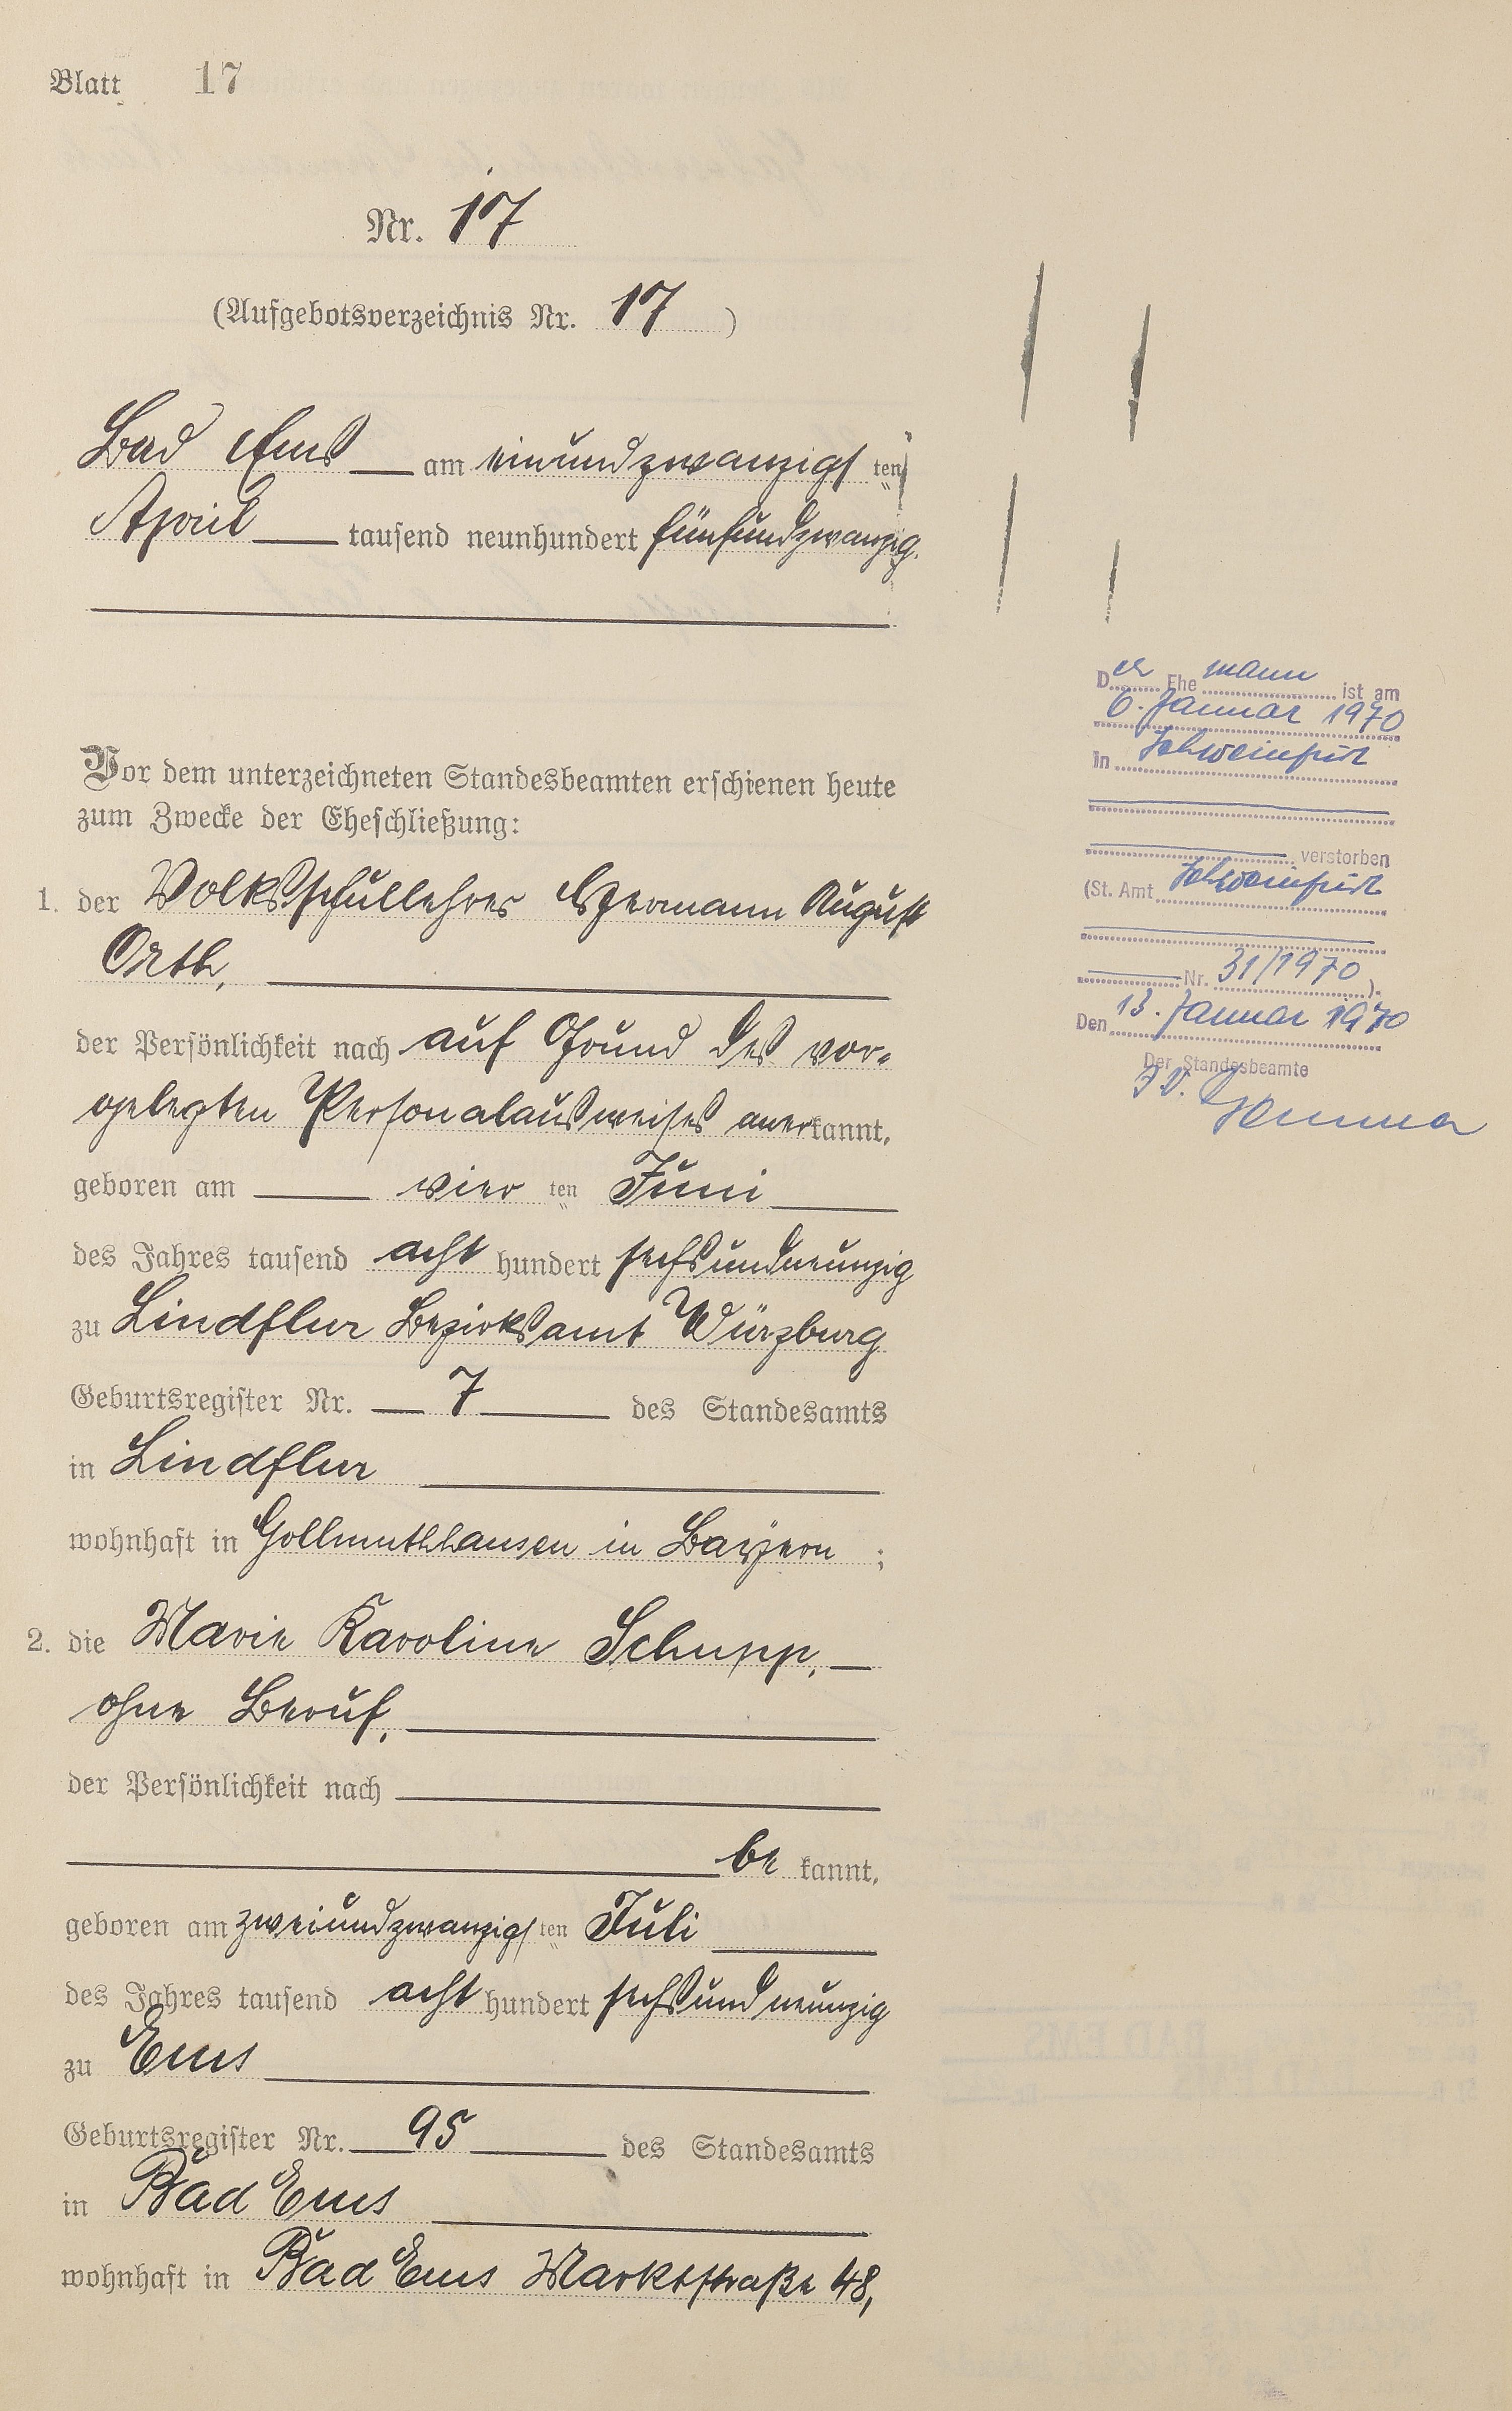 Blatt 17
Nr. 17
(Aufgebotsverzeichnis Nr. 17 )
Bad Ems am einundzwanzigsten
April tausend neunhundert fünfundzwanzig.
Vor dem unterzeichneten Standesbeamten erschienen heute
zum Zwecke der Eheschließung:
1. der Volksschullehrer Hermann August
Orth,
der Persönlichkeit nach auf Grund des vor-
gelegten Personalausweises anerkannt,
geboren am vierten Juni
des Jahres tausend acht hundert sechsundneunzig
zu Lindflur Bezirksamt Würzburg
Geburtsregister Nr. 7 des Standesamts
in Lindflur
wohnhaft in Gollmuthhausen in Bayern ;
2. die Marie Karoline Schupp,
ohne Beruf,
der Persönlichkeit nach
be kannt,
geboren am zweiundzwanzigsten Juli
des Jahres tausend acht hundert sechsundneunzig
zu Ems
Geburtsregister Nr. 95 des Standesamts
in Bad Ems
wohnhaft in Bad Ems Marktstraße 48,
Der Ehemann ist am
6. Januar 1970
in Schweinfurt
verstorben
(St. Amt Schweinfurt
Nr. 31/1970).
Den 13. Januar 1970
Der Standesbeamte
I.V.